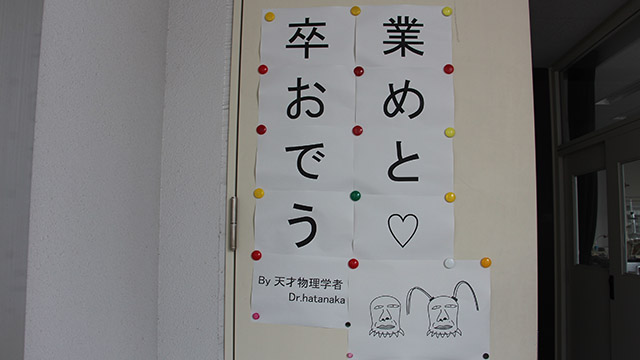 卒業
おめ
でと
う♡
By 天才物理学者
Dr.hatanaka